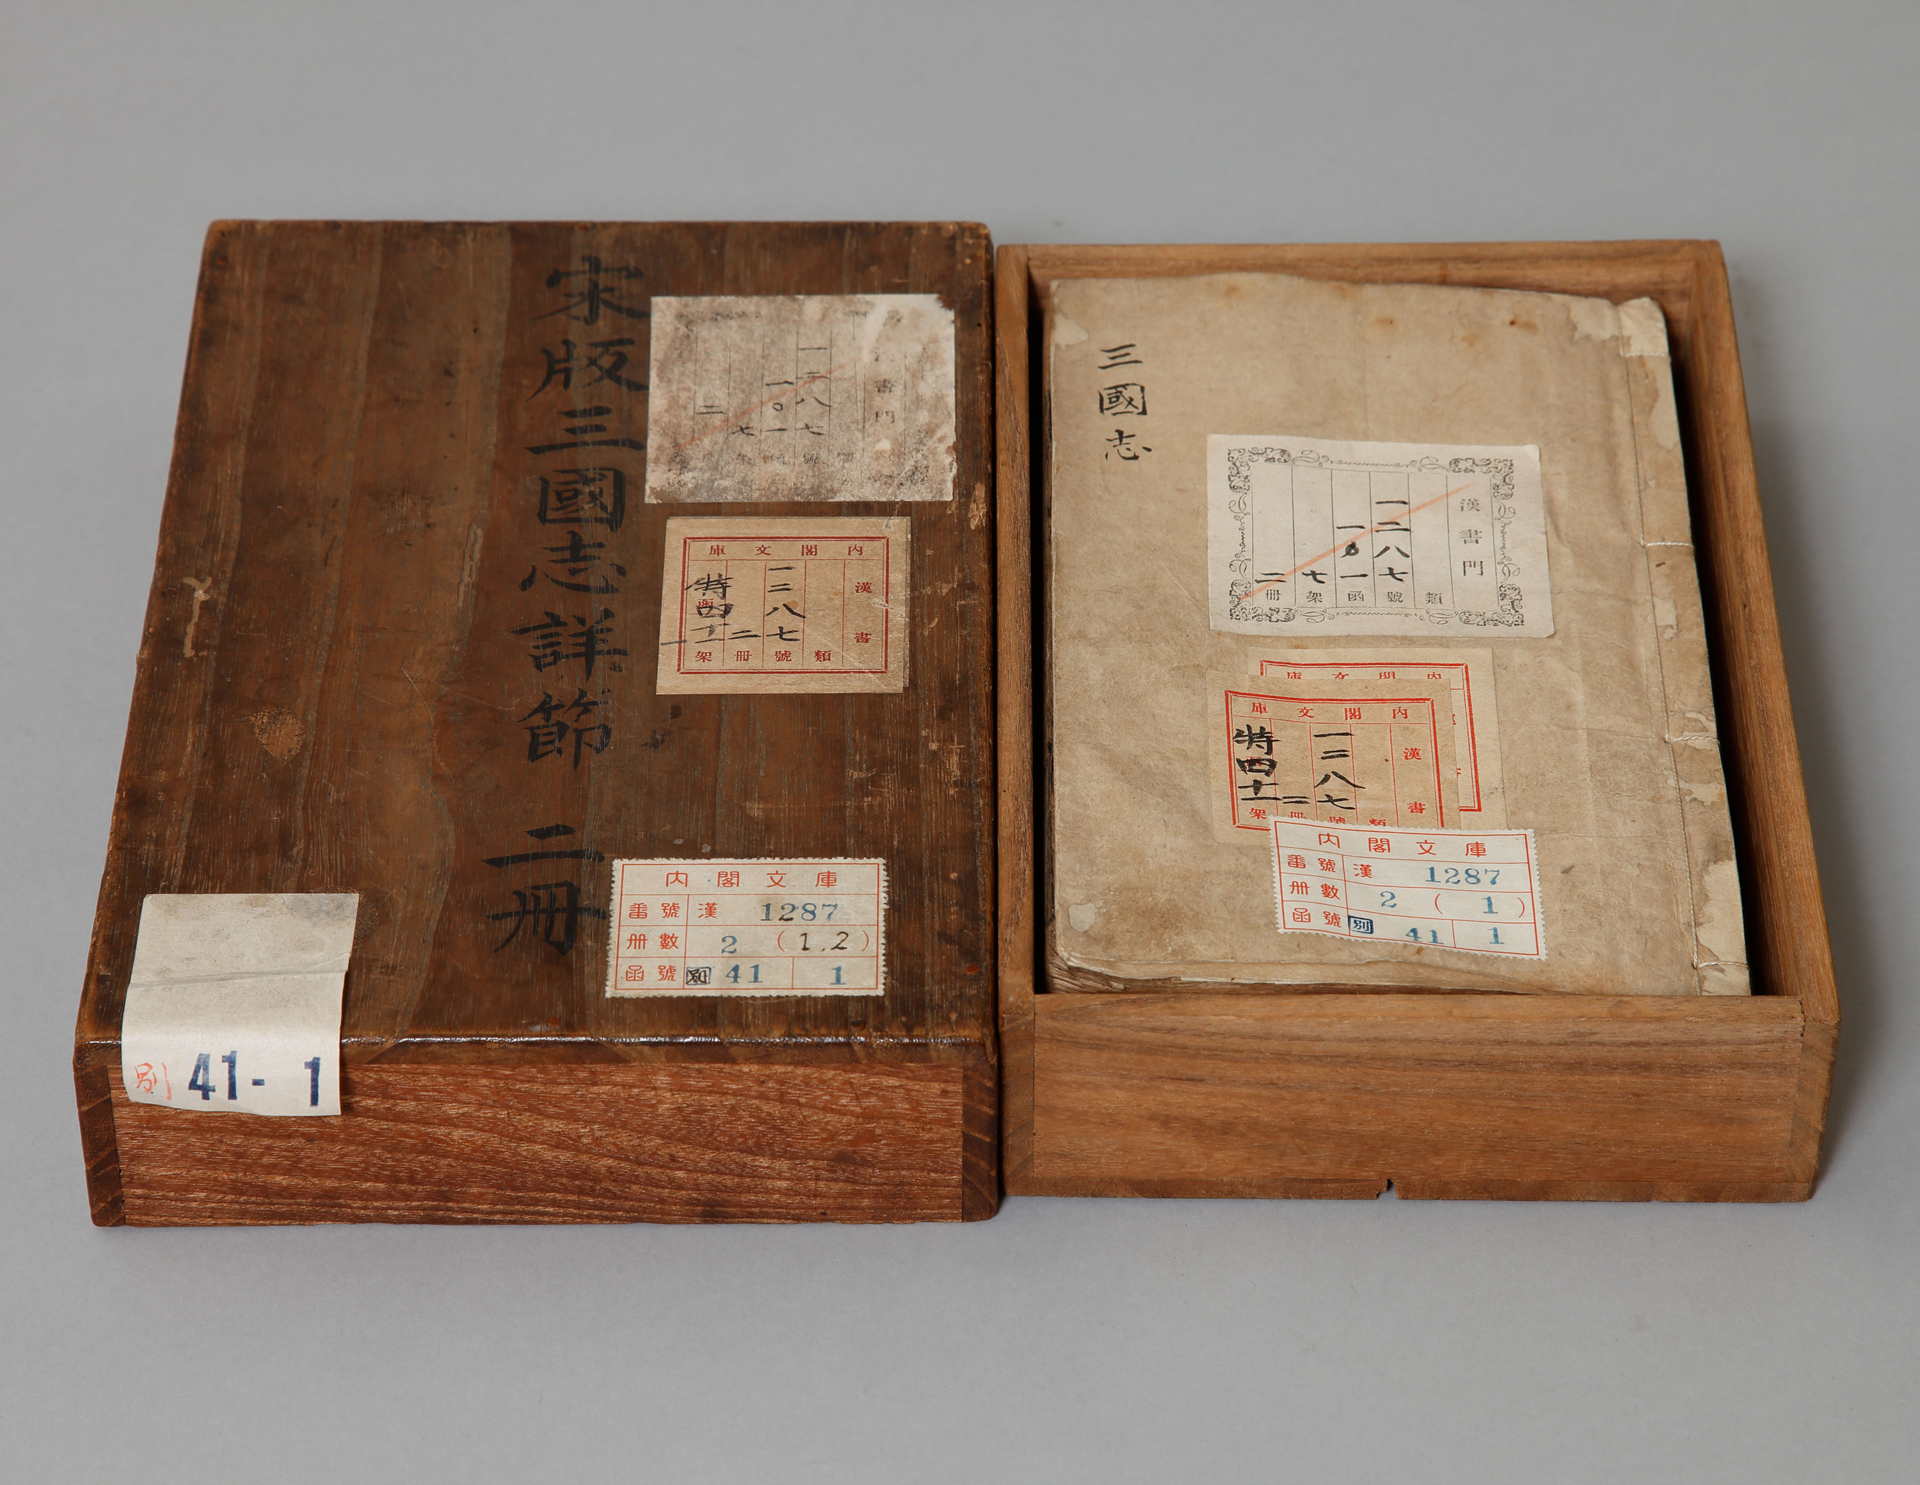 宋版三國志詳節 二冊
書門
一二八七號
一〇一
七
二
内閣文庫
漢書
類
一二八七號
二冊
特四十一
函
一架
内閣文庫
番號 漢 1287
冊數 2 (1.2)
函號 別 41 1
別 41- 1
三國志
漢書門
類
一二八七號
一〇一函
七架
二冊
内閣文庫
内閣文庫
漢書
類
一二八七號
二冊
特四十一
架
内閣文庫
番號 漢 1287
冊數 2 (1)
函號 別 41 1